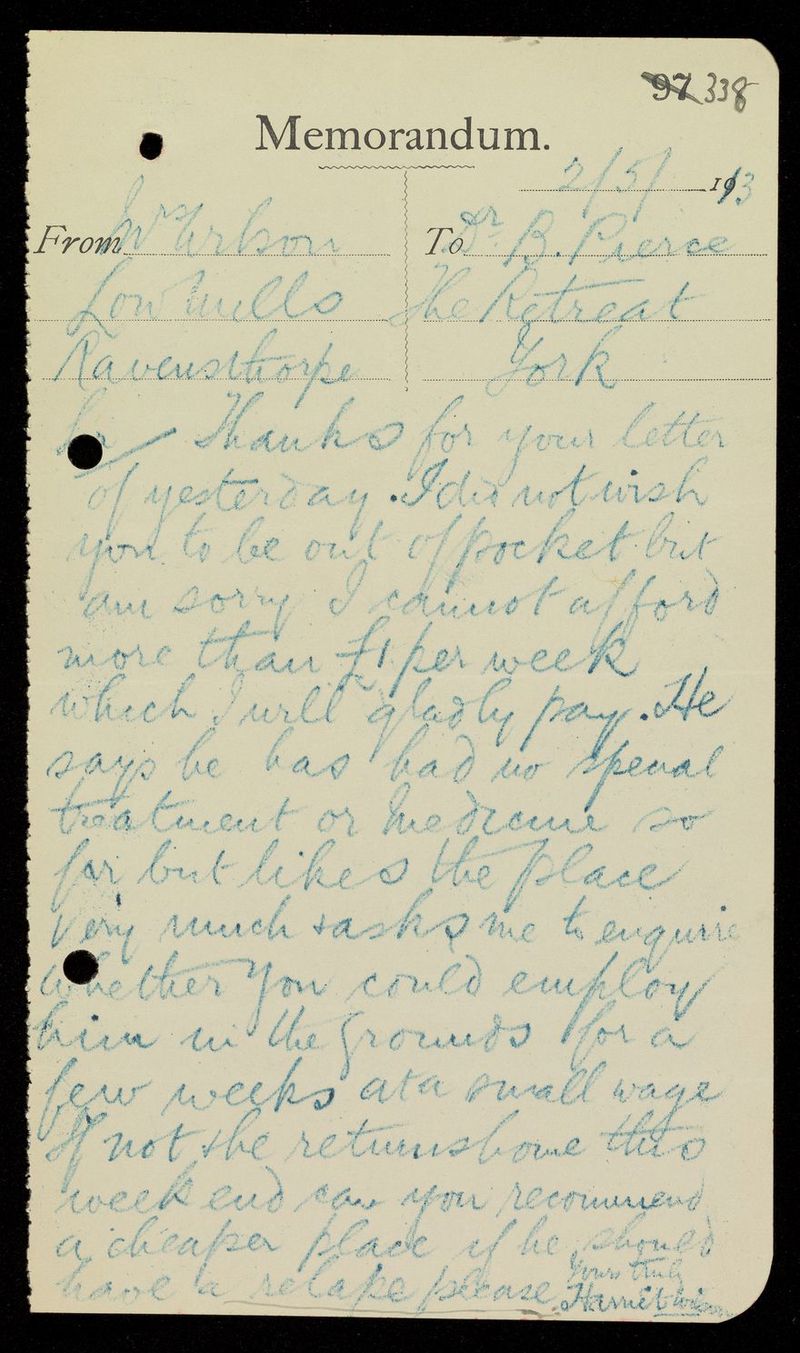 97 338
Memorandum.
2/5/ 1913
From Mrs Wilson To Dr B. Pierce
Low Mills The Retreat
Ravensthorpe York
Sir Thanks for your letter
of yesterday. I did not wish
you to be out of pocket but
am sorry I cannot afford
more than £1 per week
which I will gladly pay. He
says he has had no special
treatment or medicine so
far but likes the place
very much & asks me to enquire
whether you could employ
him in the Grounds for a
few weeks at a small wage
If not & he returns home this
week end can you recommend
a cheaper place if he should
have a relapse please
Yours truly
Harriet Wilson